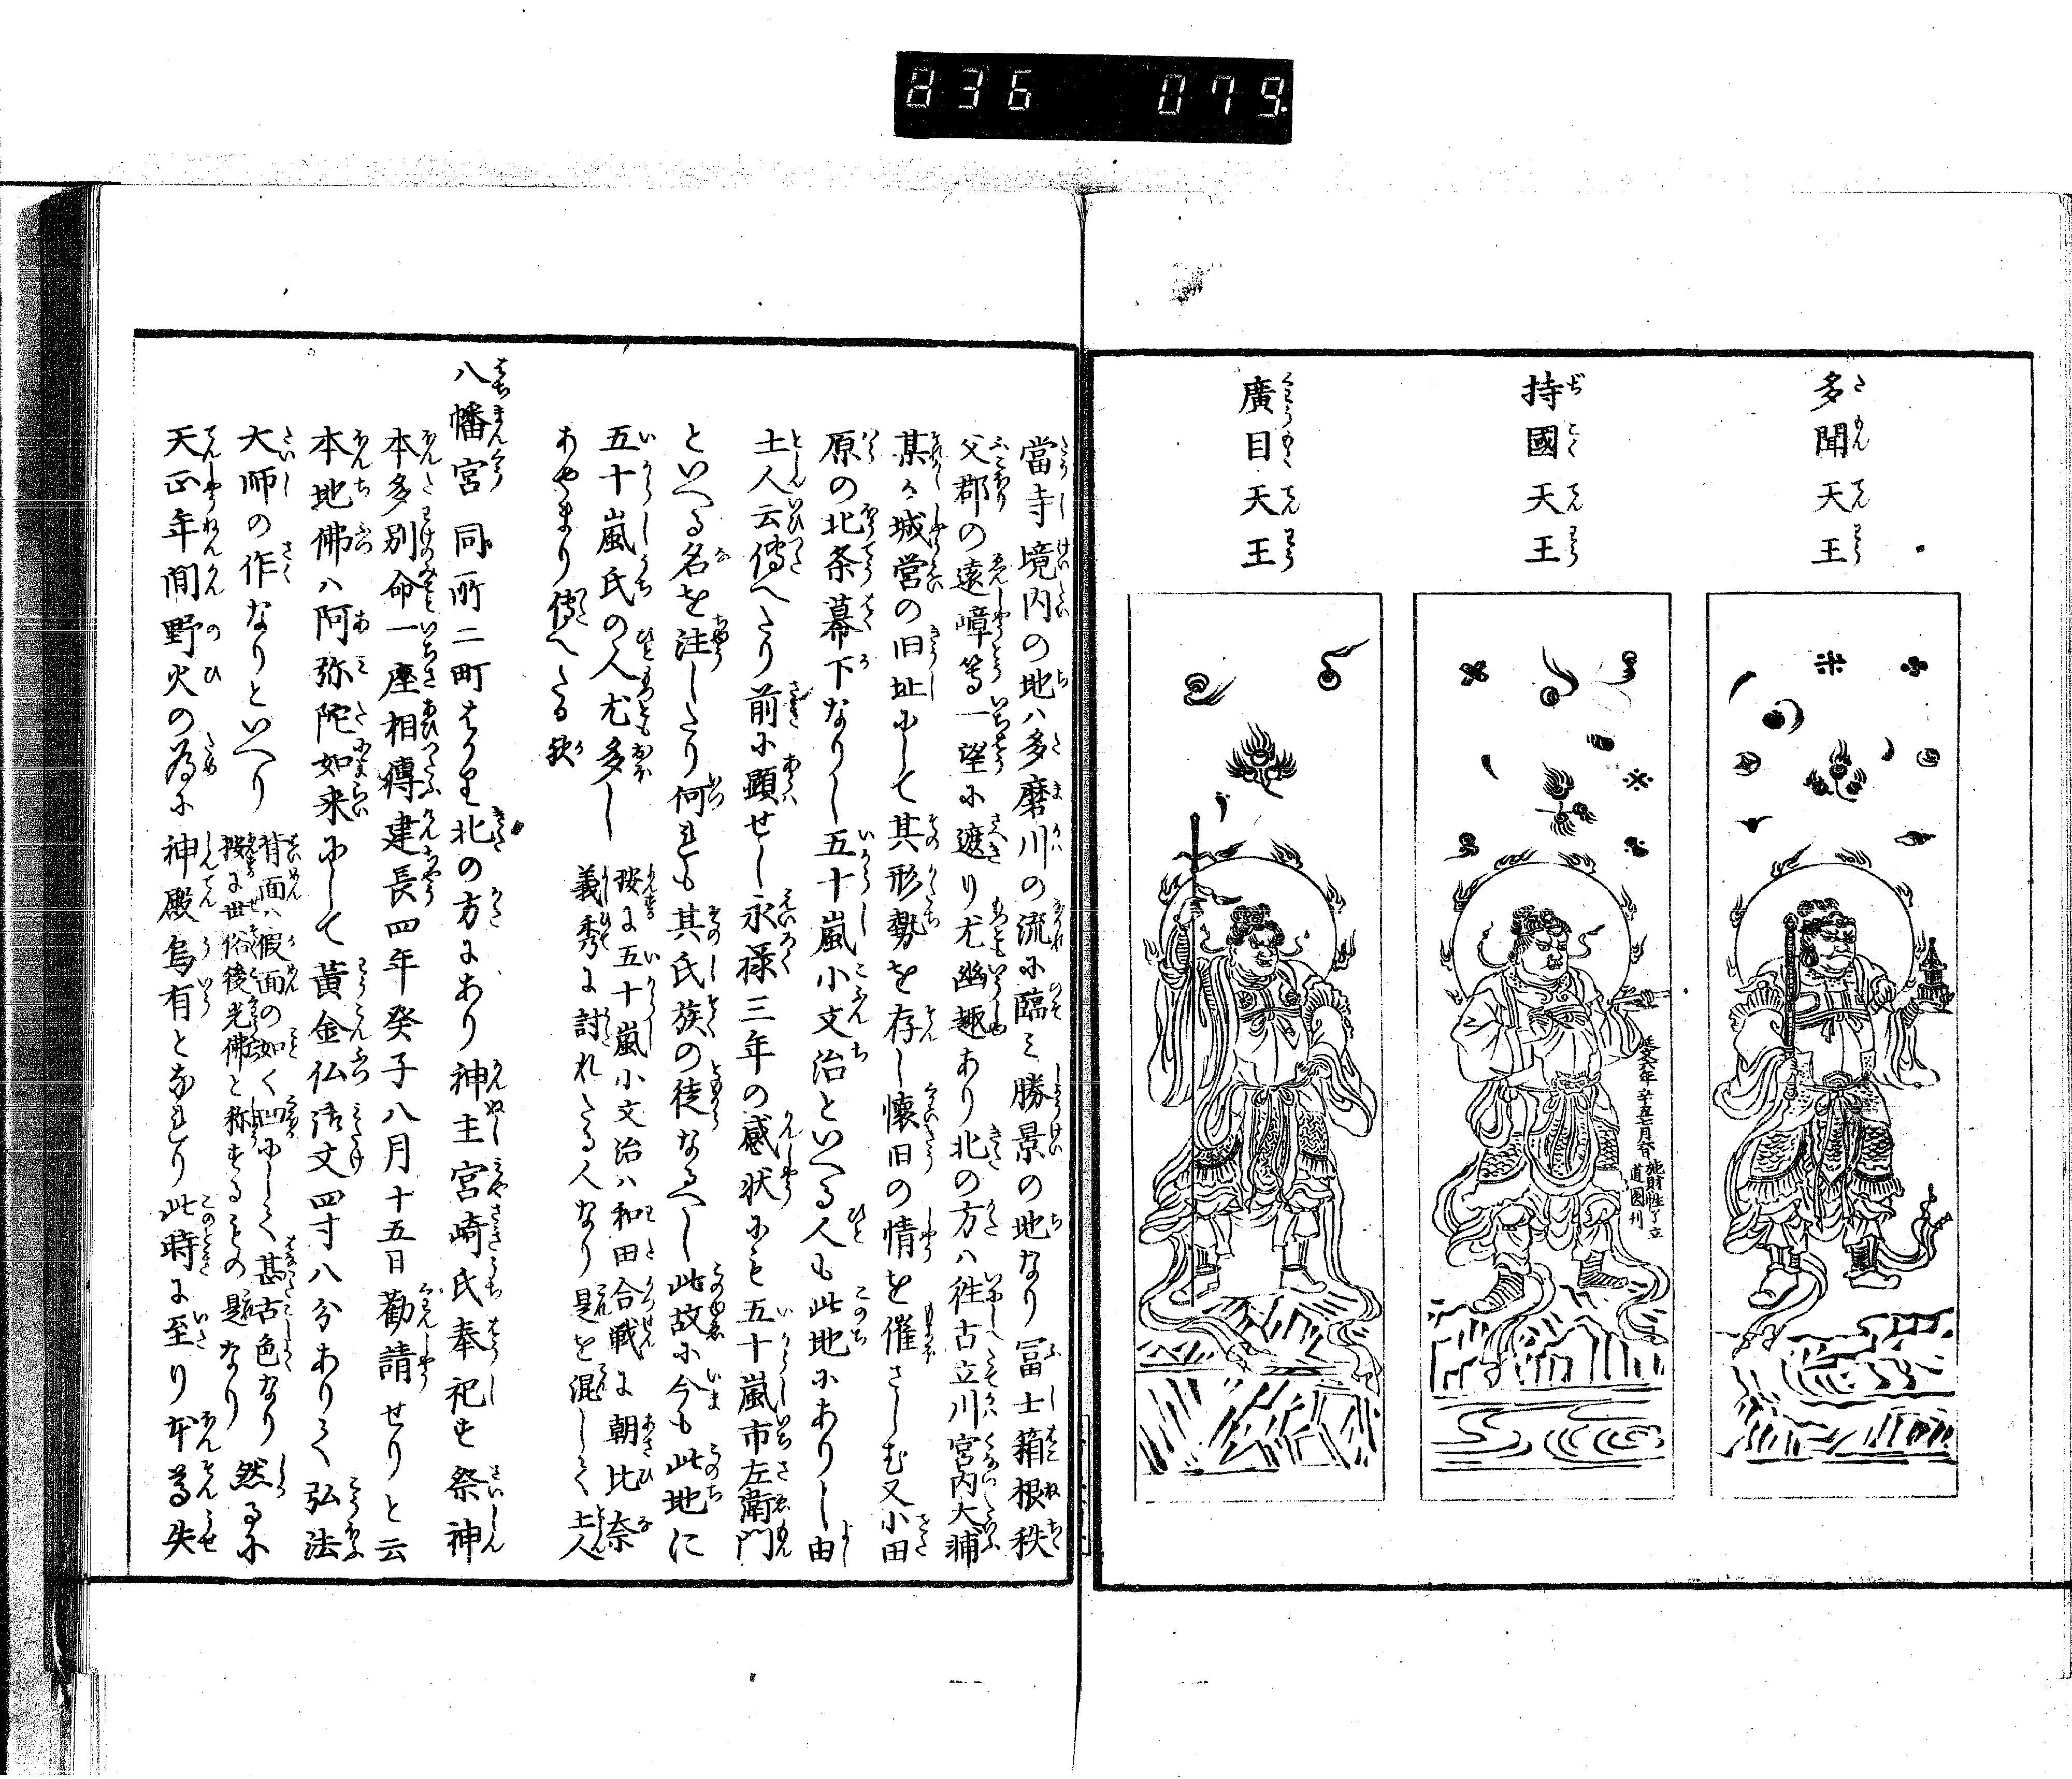 836 079
多聞天王
持國天王
廣目天王
延文六年辛丑七月六日 施財性了立
道円刊
當寺境内の地ハ多磨川の流に臨ミ勝景の地なり冨士箱根秩
父郡の遠嶂等一望に遮り尤幽趣あり北の方ハ徃古立川宮内大輔
某か城営の旧址にして其形勢を存し懐旧の情を催さしむ又小田
原の北条幕下なりし五十嵐小文治といへる人も此地にありし由
土人云傳へたり前に顕せし永禄三年の感状にも五十嵐市左衛門
といへる名を注したり何れも其氏族の徒なるへし此故に今も此地に
五十嵐氏の人尤多し
按に五十嵐小文治ハ和田合戦に朝比奈
義秀に討れたる人なり是を混して土人
あやまり傳へたる歟
八幡宮 同所二町はかり北の方にあり神主宮崎氏奉祀す祭神
本多別命一座相傳建長四年癸子八月十五日勧請せりと云
本地佛ハ阿弥陀如来にして黄金仏御丈四寸八分ありて弘法
大師の作なりといへり
背面ハ假面の如く凹にして甚古色なり
按に世俗後光佛と称するもの是なり
然るに
天正年間野火の為に神殿烏有となれり此時に至り本尊失